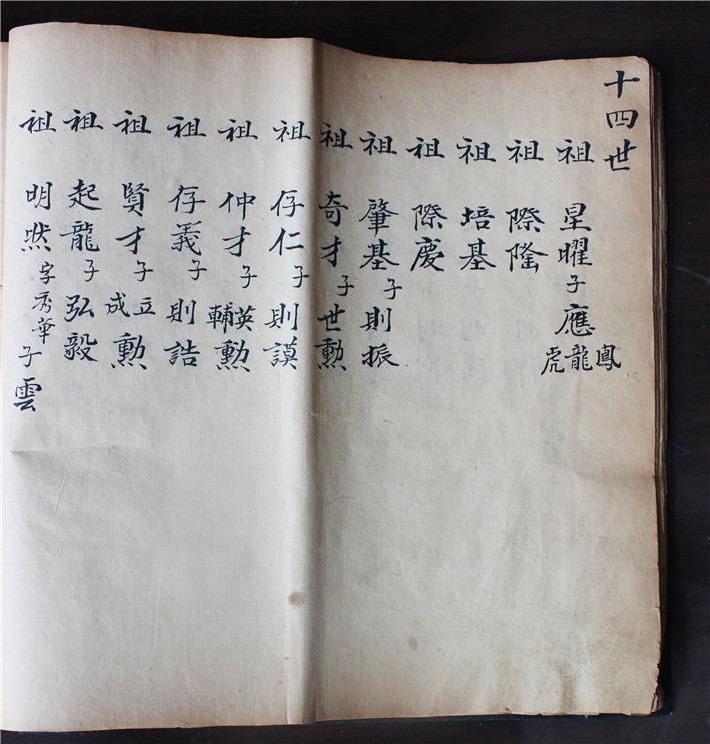 十四世
祖 星曜子應鳳龍虎
祖 際隆
祖 培基
祖 際慶
祖 肇基子則振
祖 奇才子世勲
祖 存仁子則謨
祖 仲才子英輔勲
祖 存義子則誥
祖 賢才子立成勲
祖 起龍子弘毅
祖 明然字秀華子雲